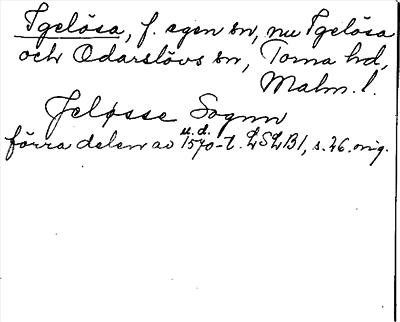 Igelösa, f. egen sn, nu Igelösa
och Odarslövs sn, Torna hd,
Malm. l.
Jeløsse Sognn
u.d.
förra delen av 1570-t. LSLB1, s. 26. orig.